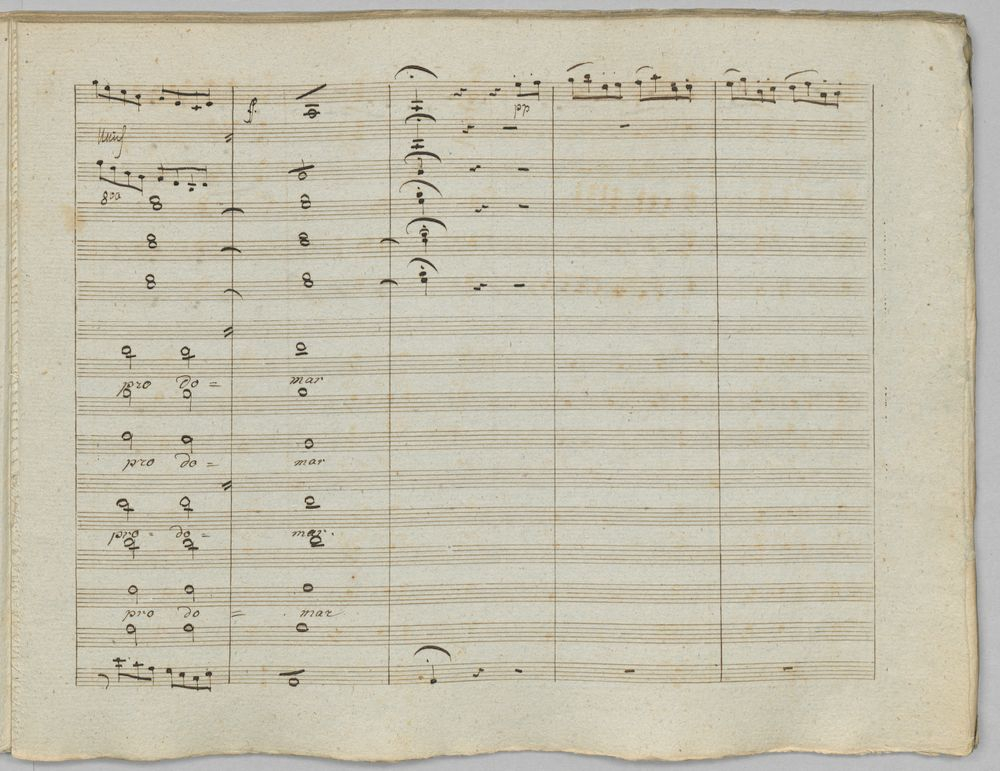 ff.
pp
Unis
8va
pro do = mar
pro do = mar
pro = do = mar.
pro do = mar